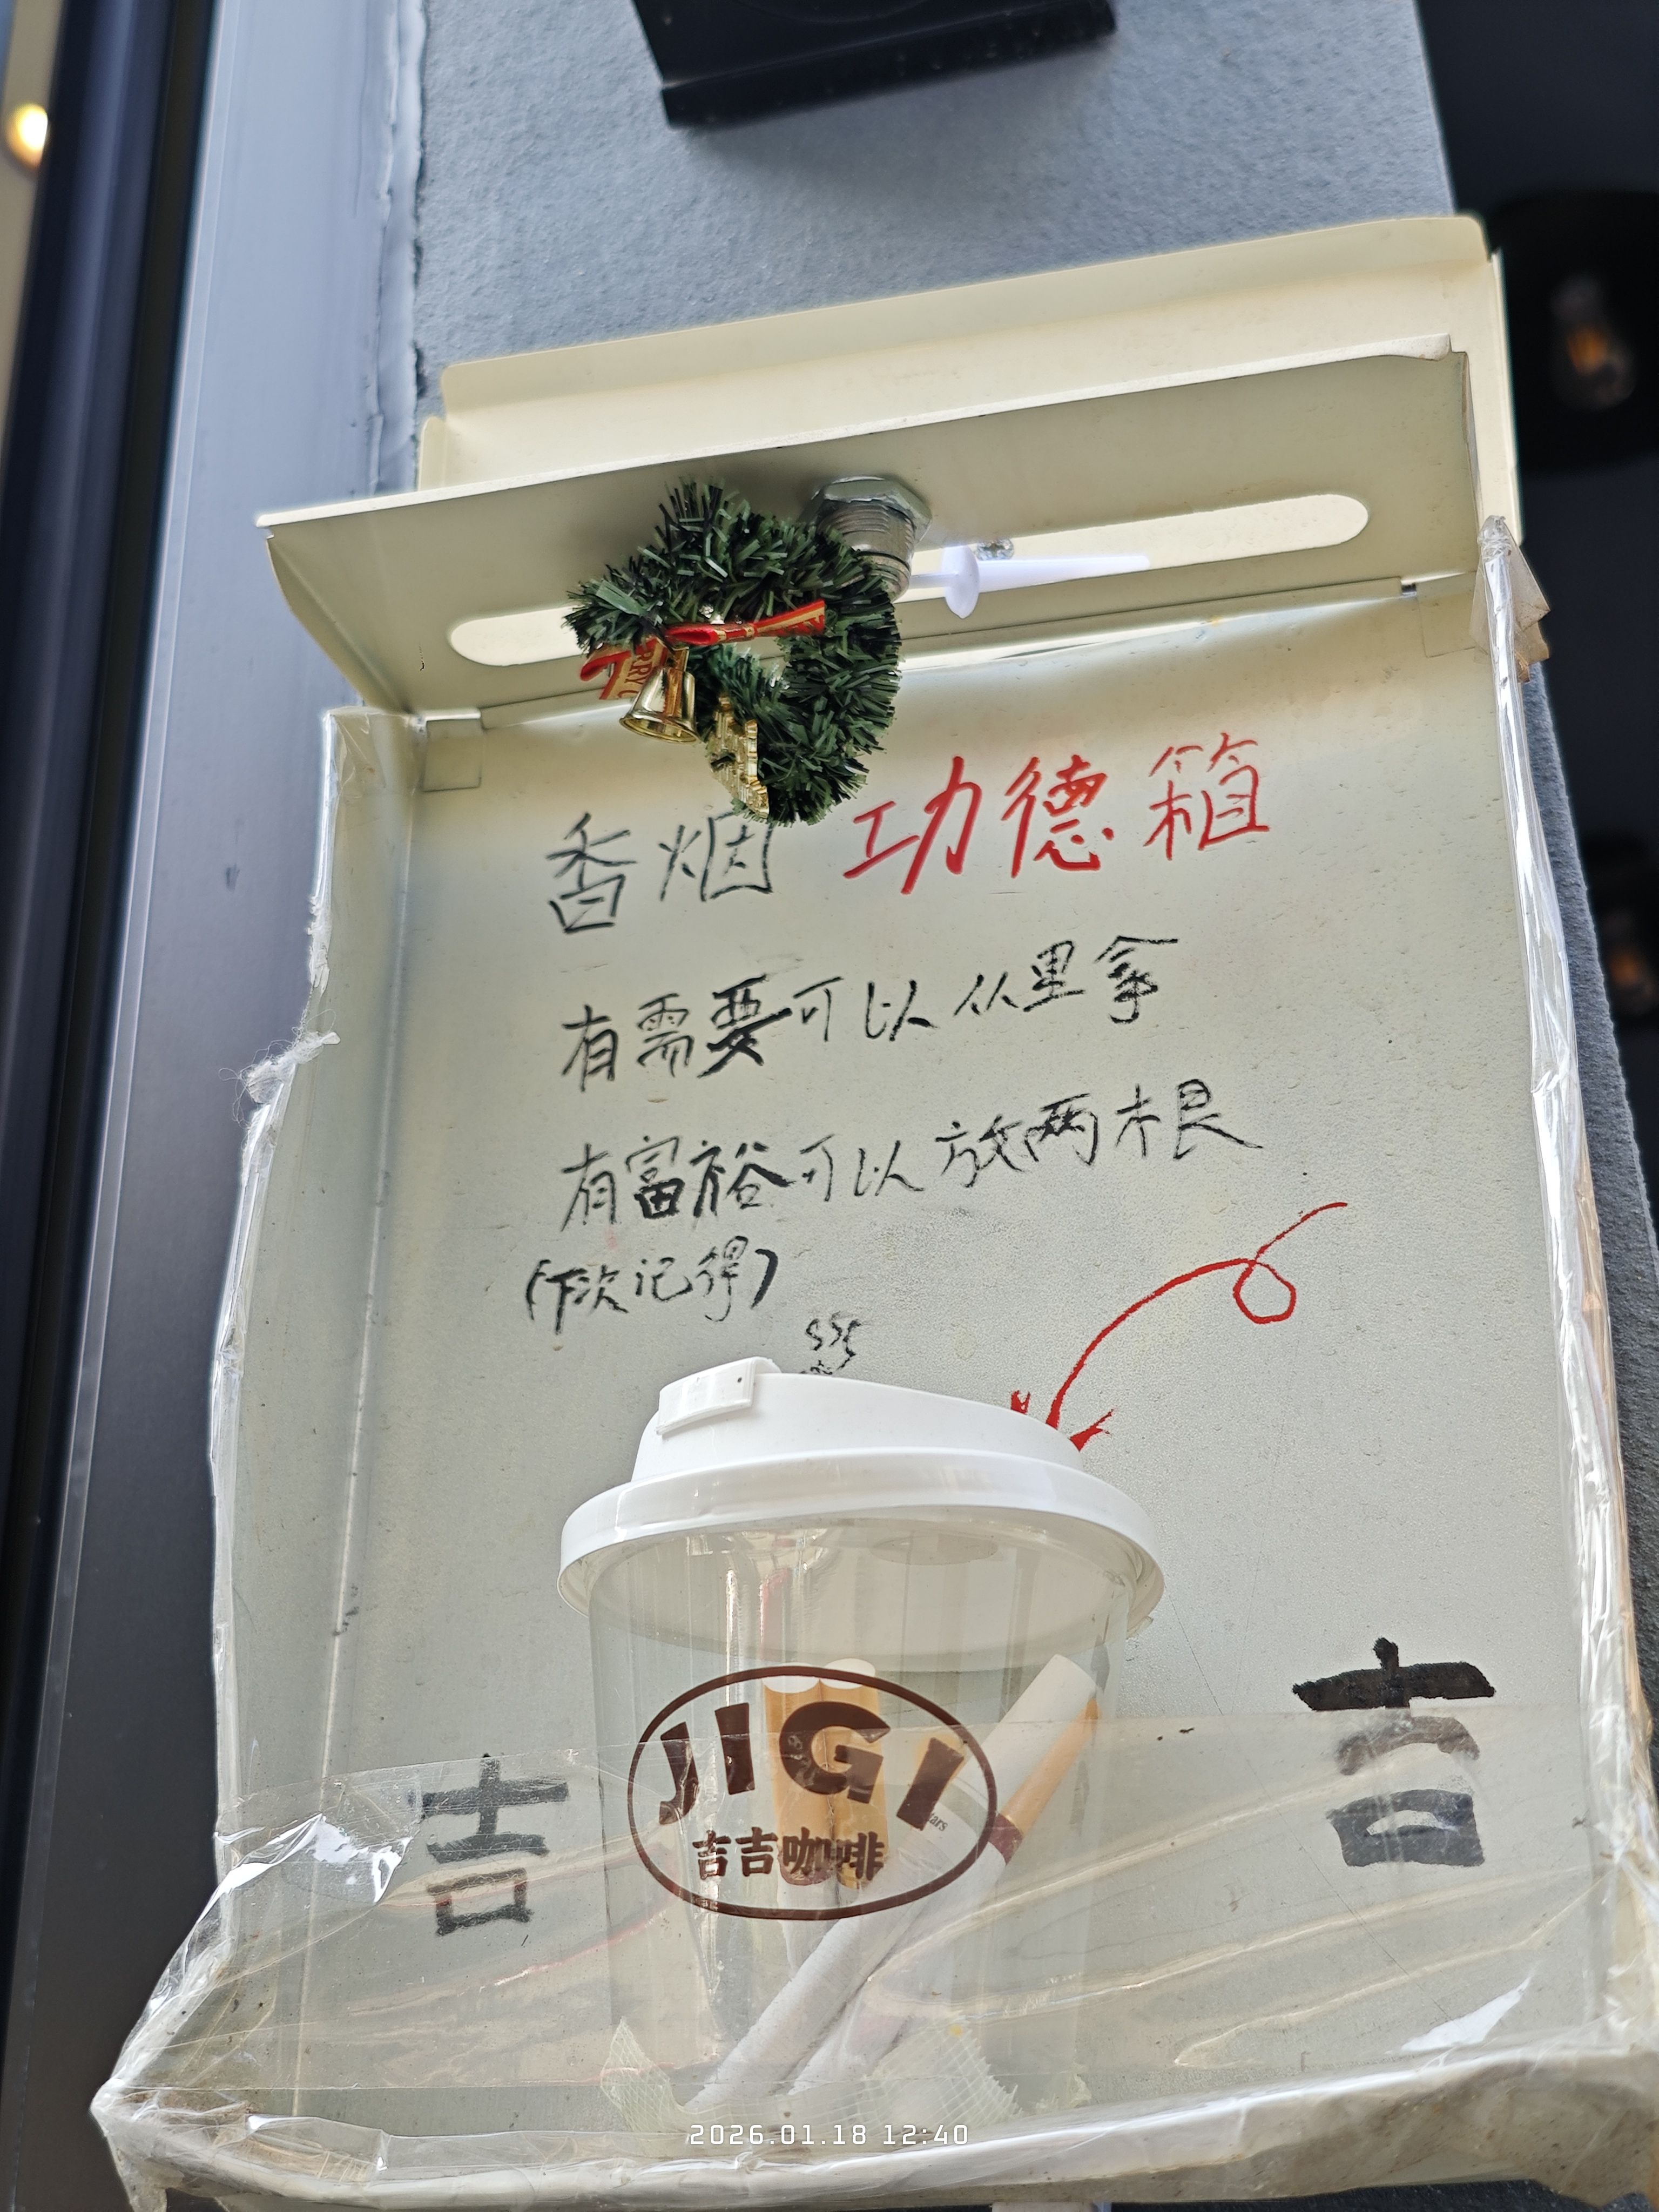 香烟 功德箱
有需要可以从里拿
有富裕可以放两根
(下次记得)
JIGI
吉吉咖啡
吉
吉
2026.01.18 12:40